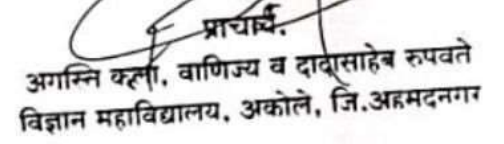 प्राचार्य.
अगस्ति कला, वाणिज्य व दादासाहेब रुपवते
विज्ञान महाविद्यालय, अकोले, जि.अहमदनगर